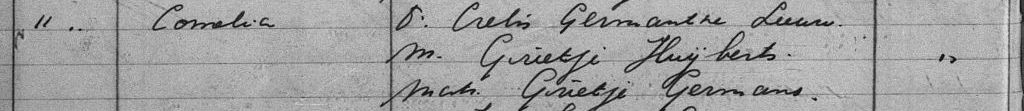 " .. Cornelia V. Crelis Germantze Leeuw.
M. Grietje Huijberts. "
Mat. Grietje Germans.